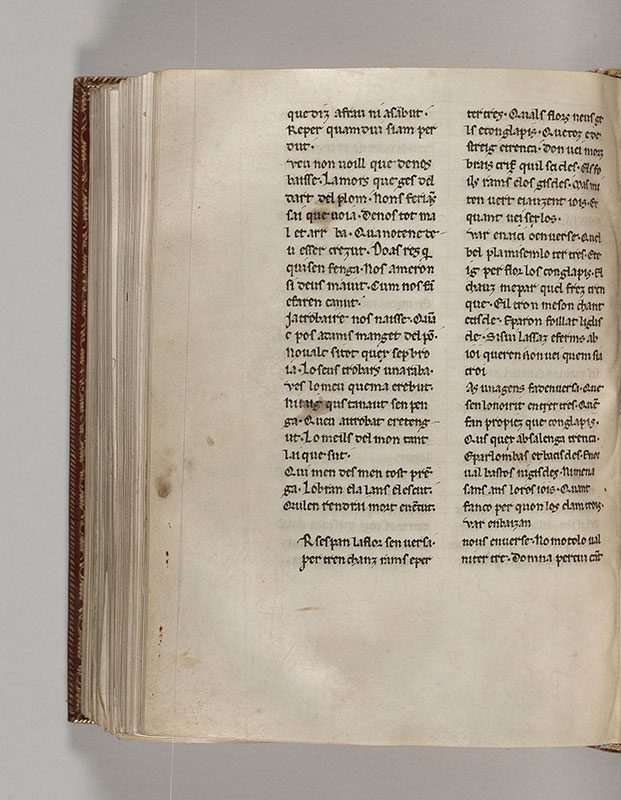 que diz afrau ni asābut.
Reper quam dui siam per
dut.
veu non uoill que denes
baisse. Lamors que ges del
dart del plom. Nons feriqͣs
sai que uoia. De nos tot ma
l et arr ba. Qua no tene te
u esser crezut. Doas res q̄
qui sen fenga. Nos ameron
si deus maiut. Cum nos fū
efaren canut.
Ja trobaire nos naisse. Qūa
c pos adams manget del pō.
No ualc si tot quer sep bro
ia. Lo seus trobars una raba.
ves lo meu que ma erebut.
Ni taig qus tanaut sen pen
ga. Qu eu aitrobat e reteng
ut. Lo meils del mon tant
lai que sut.
Qui men des men tost prē
ga. Lo bran ela lans el escut.
Qui len rendrai mort euēcut.
R sespan la flor sen uersa.
per tren chanz rams e per
ter tres. Quals flors neus ge
ls e conglapis. Que coz e de
streig e trenca. Don uei morz
brais criz quil scisles. E is fo
ils rams e los giscles. Mas mi
ten vert e iauzent iois. Er
quant uei ser los.
var en aici o en uerse. Quel
bel plan isemlo ter tres. E te
ig per flor los conglapis. El
chauz me par quel frez tren
que. E il tron me son chant
e siscle. E paron foillat li gis
cle. Sisui lassaz e ferms ab
ioi queren non uei quem sia
croi
As una gens fadenuersa. Que
sen loirit en ter tres. Quē
fan propiez que conglapis.
Q us quer ab sa lenga trenca.
E parlom bas et ab siscles. E noi
ual bastos ni giscles. Ni mena
sans ans lor es iois. Quant
fan co per quon los clam crois.
var en baizan
no us enuerse. No mo tolo ual
ni ter tre. Domna per cui cāt